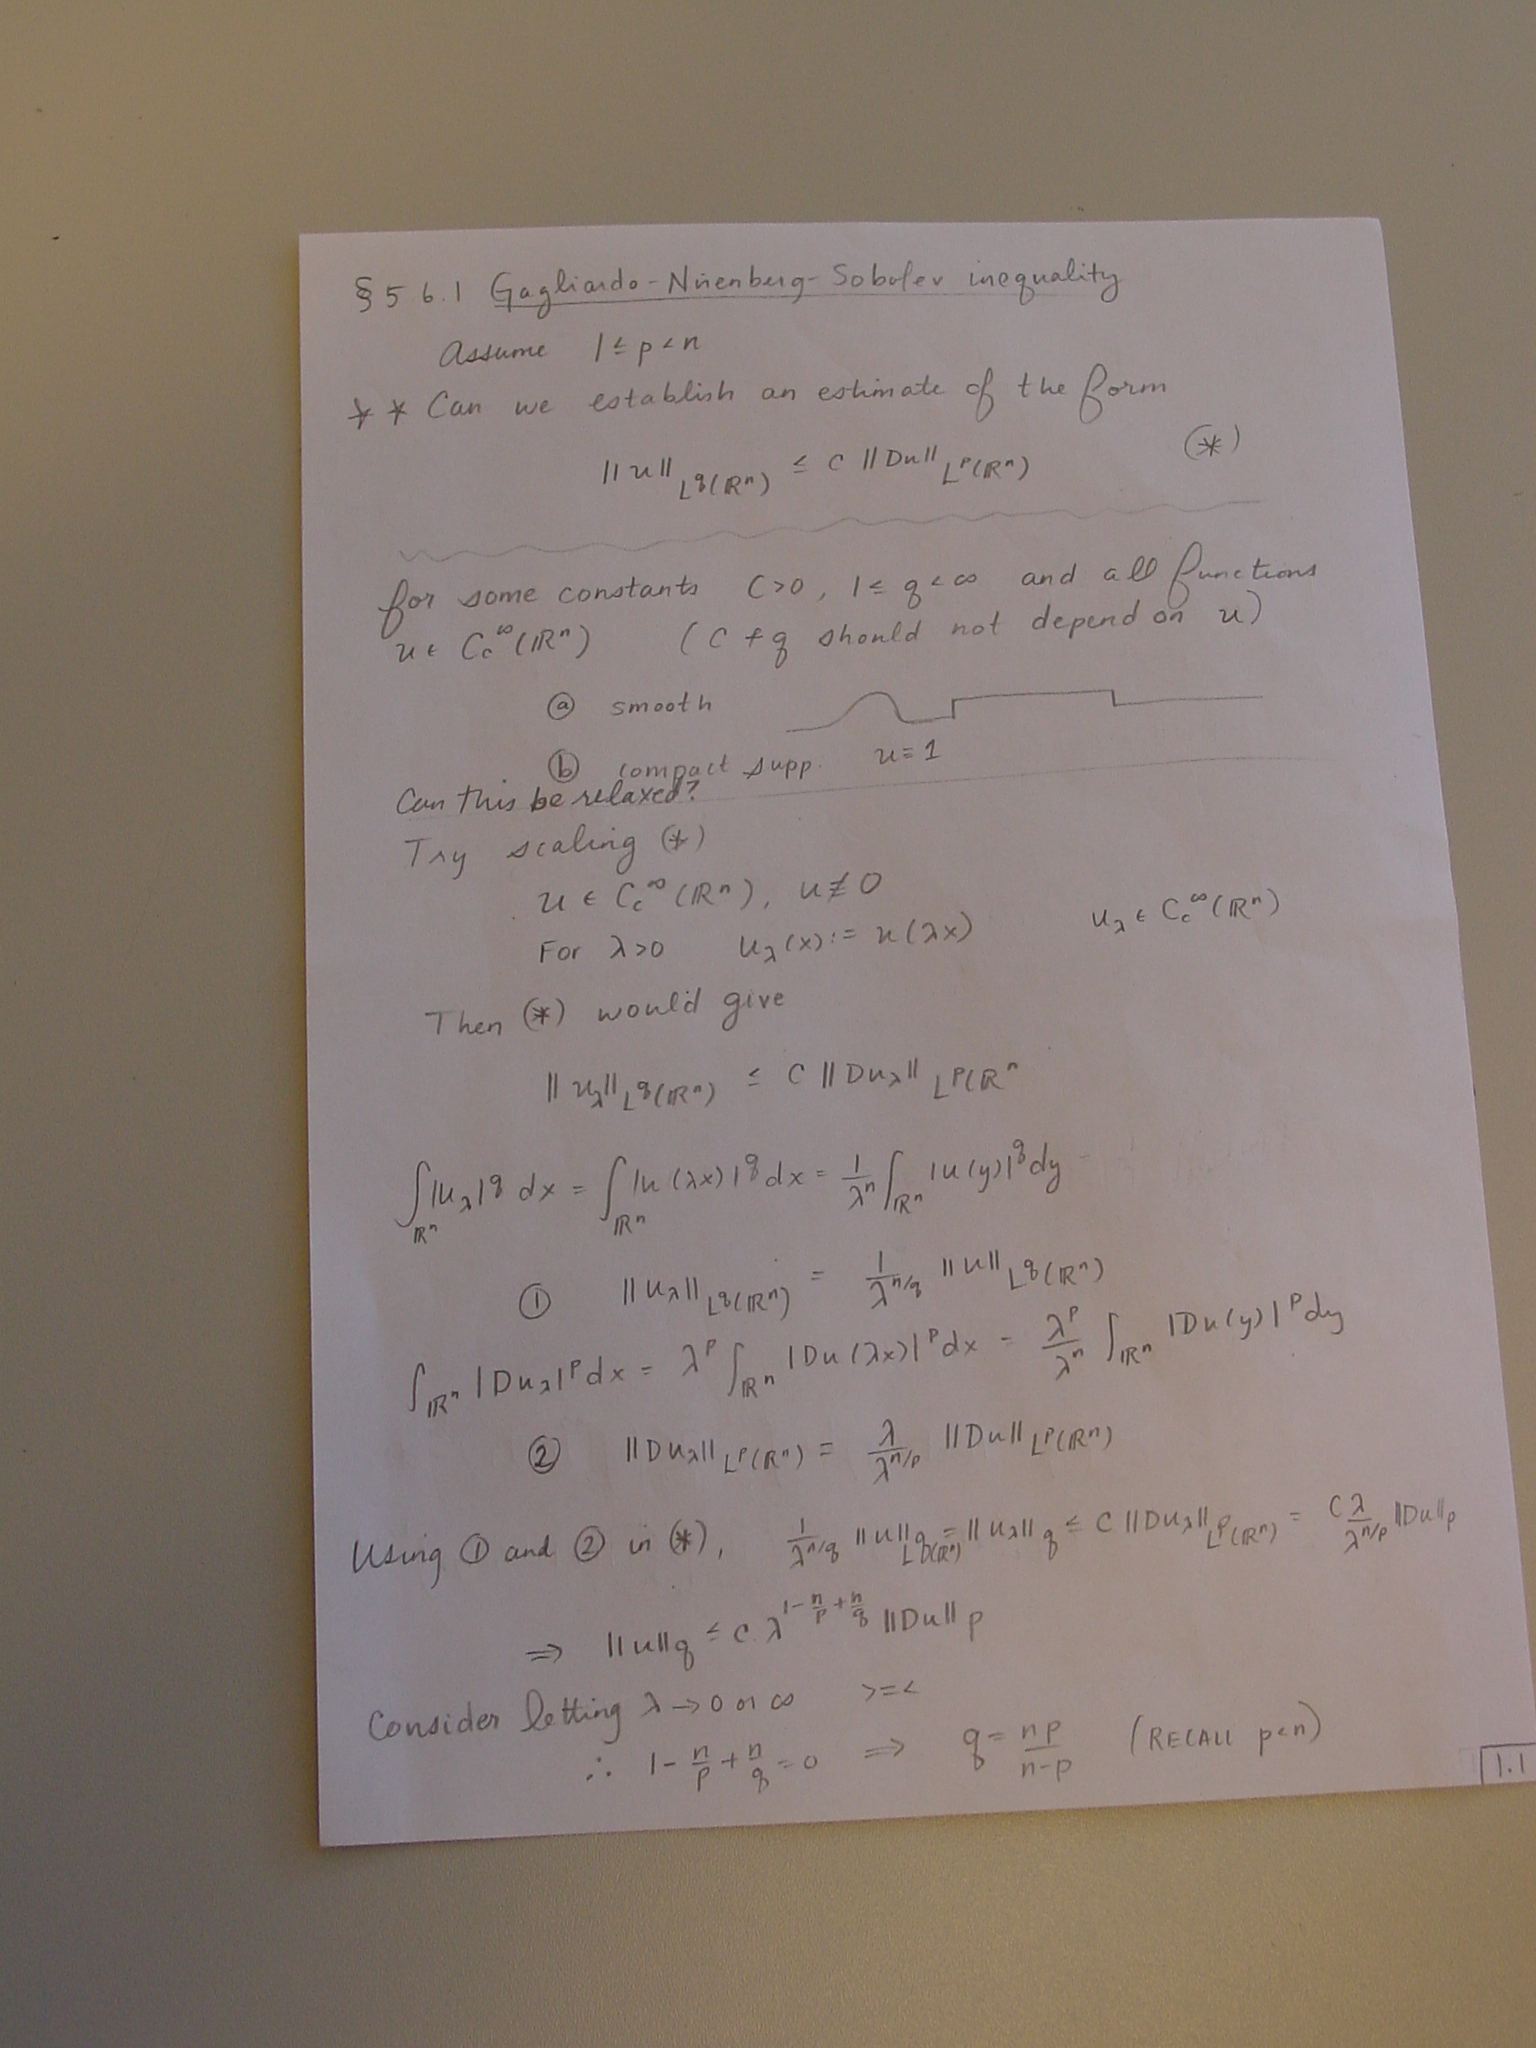 § 5 6.1 Gagliardo-Nirenberg-Sobolev inequality
Assume 1 ≤ p < n
* * Can we establish an estimate of the form
||u||_{L^q(ℝ^n)} ≤ C ||Du||_{L^p(ℝ^n)} (*)
for some constants C>0, 1 ≤ q < ∞ and all functions
u ∈ C_c^∞(ℝ^n) (C + q should not depend on u)
ⓐ smooth
ⓑ compact supp. u = 1
Can this be relaxed?
Try scaling (*)
u ∈ C_c^∞(ℝ^n), u ≢ 0
For λ>0 u_λ(x) := u(λx) u_λ ∈ C_c^∞(ℝ^n)
Then (*) would give
||u_λ||_{L^q(ℝ^n)} ≤ C ||Du_λ||_{L^p(ℝ^n}
∫_{ℝ^n} |u_λ|^q dx = ∫_{ℝ^n} |u(λx)|^q dx = 1/λ^n ∫_{ℝ^n} |u(y)|^q dy
① ||u_λ||_{L^q(ℝ^n)} = 1/λ^{n/q} ||u||_{L^q(ℝ^n)}
∫_{ℝ^n} |Du_λ|^p dx = λ^p ∫_{ℝ^n} |Du(λx)|^p dx = λ^p/λ^n ∫_{ℝ^n} |Du(y)|^p dy
② ||Du_λ||_{L^p(ℝ^n)} = λ/λ^{n/p} ||Du||_{L^p(ℝ^n)}
Using ① and ② in (*), 1/λ^{n/q} ||u||_{L^q(ℝ^n)} = ||u_λ||_q ≤ C ||Du_λ||_{L^p(ℝ^n)} = Cλ/λ^{n/p} ||Du||_p
⇒ ||u||_q ≤ C λ^{1-n/p+n/q} ||Du||_p
Consider letting λ → 0 or ∞ >=<
∴ 1 - n/p + n/q = 0 ⇒ q = np/n-p (RECALL p<n)
1.1